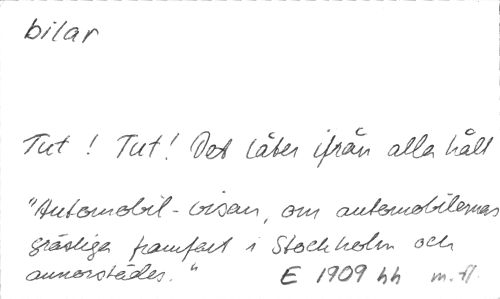 bilar
Tut! Tut! Det låter ifrån alla håll
"Automobil-visan, om automobilernas
gräsliga framfart i Stockholm och
annorstädes." E 1909 hh m.fl.